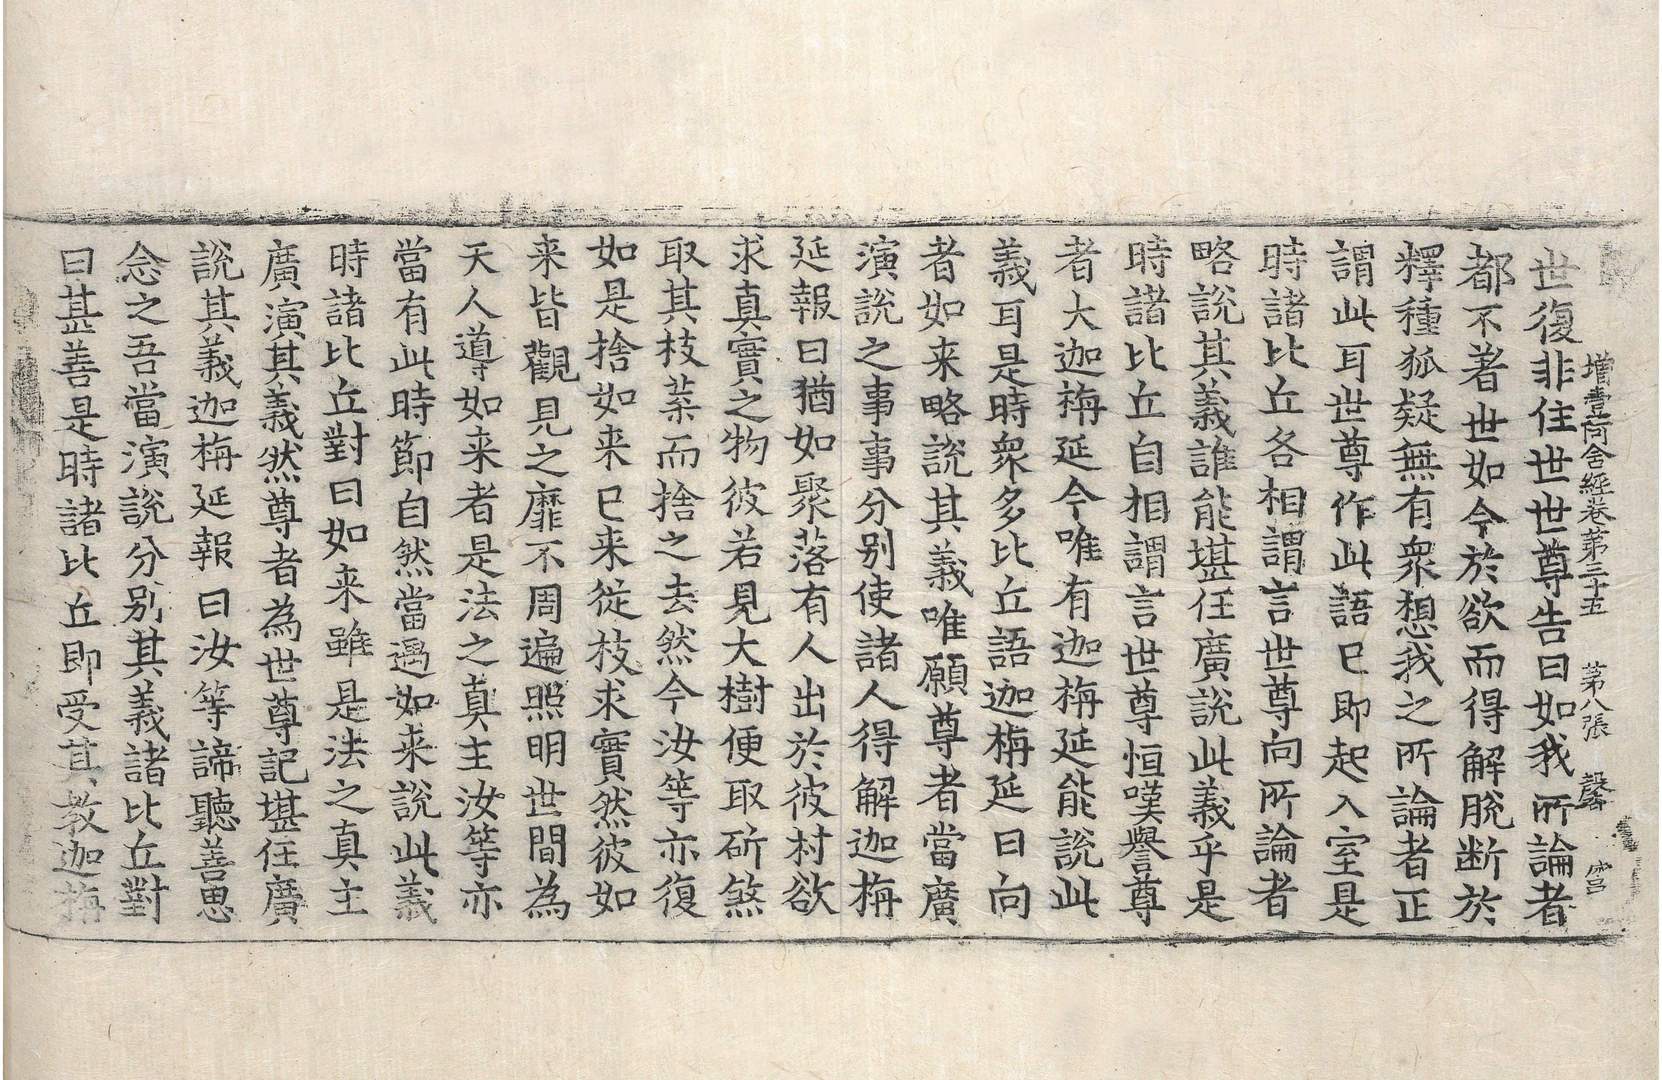 增壹阿含經卷第三十五　第八張　馨　富
世復非住世世尊告曰如我所論者
都不著世如今於欲而得解脫断於
釋種狐疑無有衆想我之所論者正
謂此耳世尊作此語已即起入室是
時諸比丘各相謂言世尊向所論者
略說其義誰能堪任廣說此義乎是
時諸比丘自相謂言世尊恒嘆譽尊
者大迦栴延今唯有迦栴延能說此
義耳是時衆多比丘語迦栴延曰向
者如来略說其義唯願尊者當廣
演說之事事分別使諸人得解迦栴
延報曰猶如聚落有人出於彼村欲
求真實之物彼若見大樹便取斫煞
取其枝葉而捨之去然今汝等亦復
如是捨如来已来從枝求實然彼如
来皆觀見之靡不周遍照明世間為
天人導如来者是法之真主汝等亦
當有此時節自然當遇如来說此義
時諸比丘對曰如来雖是法之真主
廣演其義然尊者為世尊記堪任廣
說其義迦栴延報曰汝等諦聽善思
念之吾當演說分別其義諸比丘對
曰甚善是時諸比丘即受其教迦栴